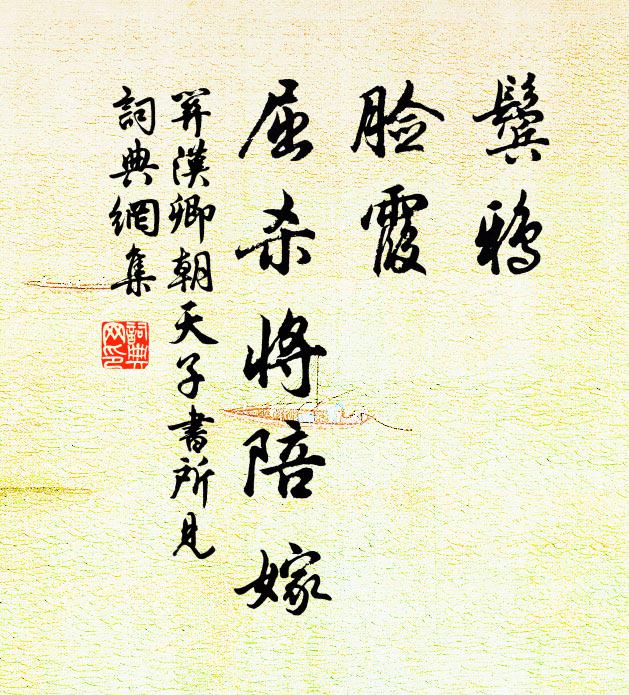 鬓鸦
脸霞
屈杀将陪嫁
關漢卿朝天子書所見
詞典網集
詞典
网印